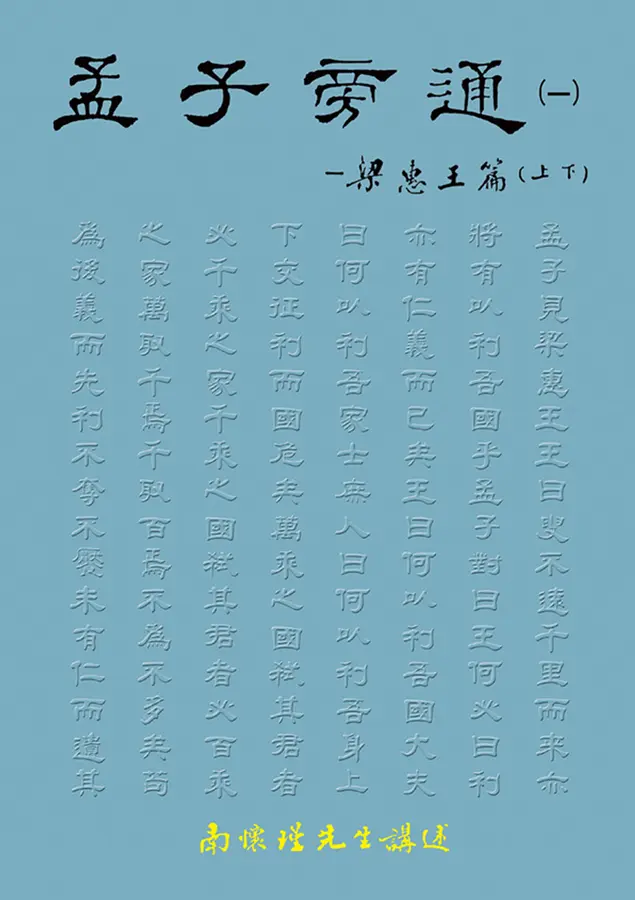 孟子旁通(一)
—梁惠王篇(上下)
孟子見梁惠王王曰叟不遠千里而來亦
將有以利吾國乎孟子對曰王何必曰利
亦有仁義而已矣王曰何以利吾國大夫
曰何以利吾家士庶人曰何以利吾身上
下交征利而國危矣萬乘之國弒其君者
必千乘之家千乘之國弒其君者必百乘
之家萬取千焉千取百焉不為不多矣苟
為後義而先利不奪不饜未有仁而遺其
南懷瑾先生講述